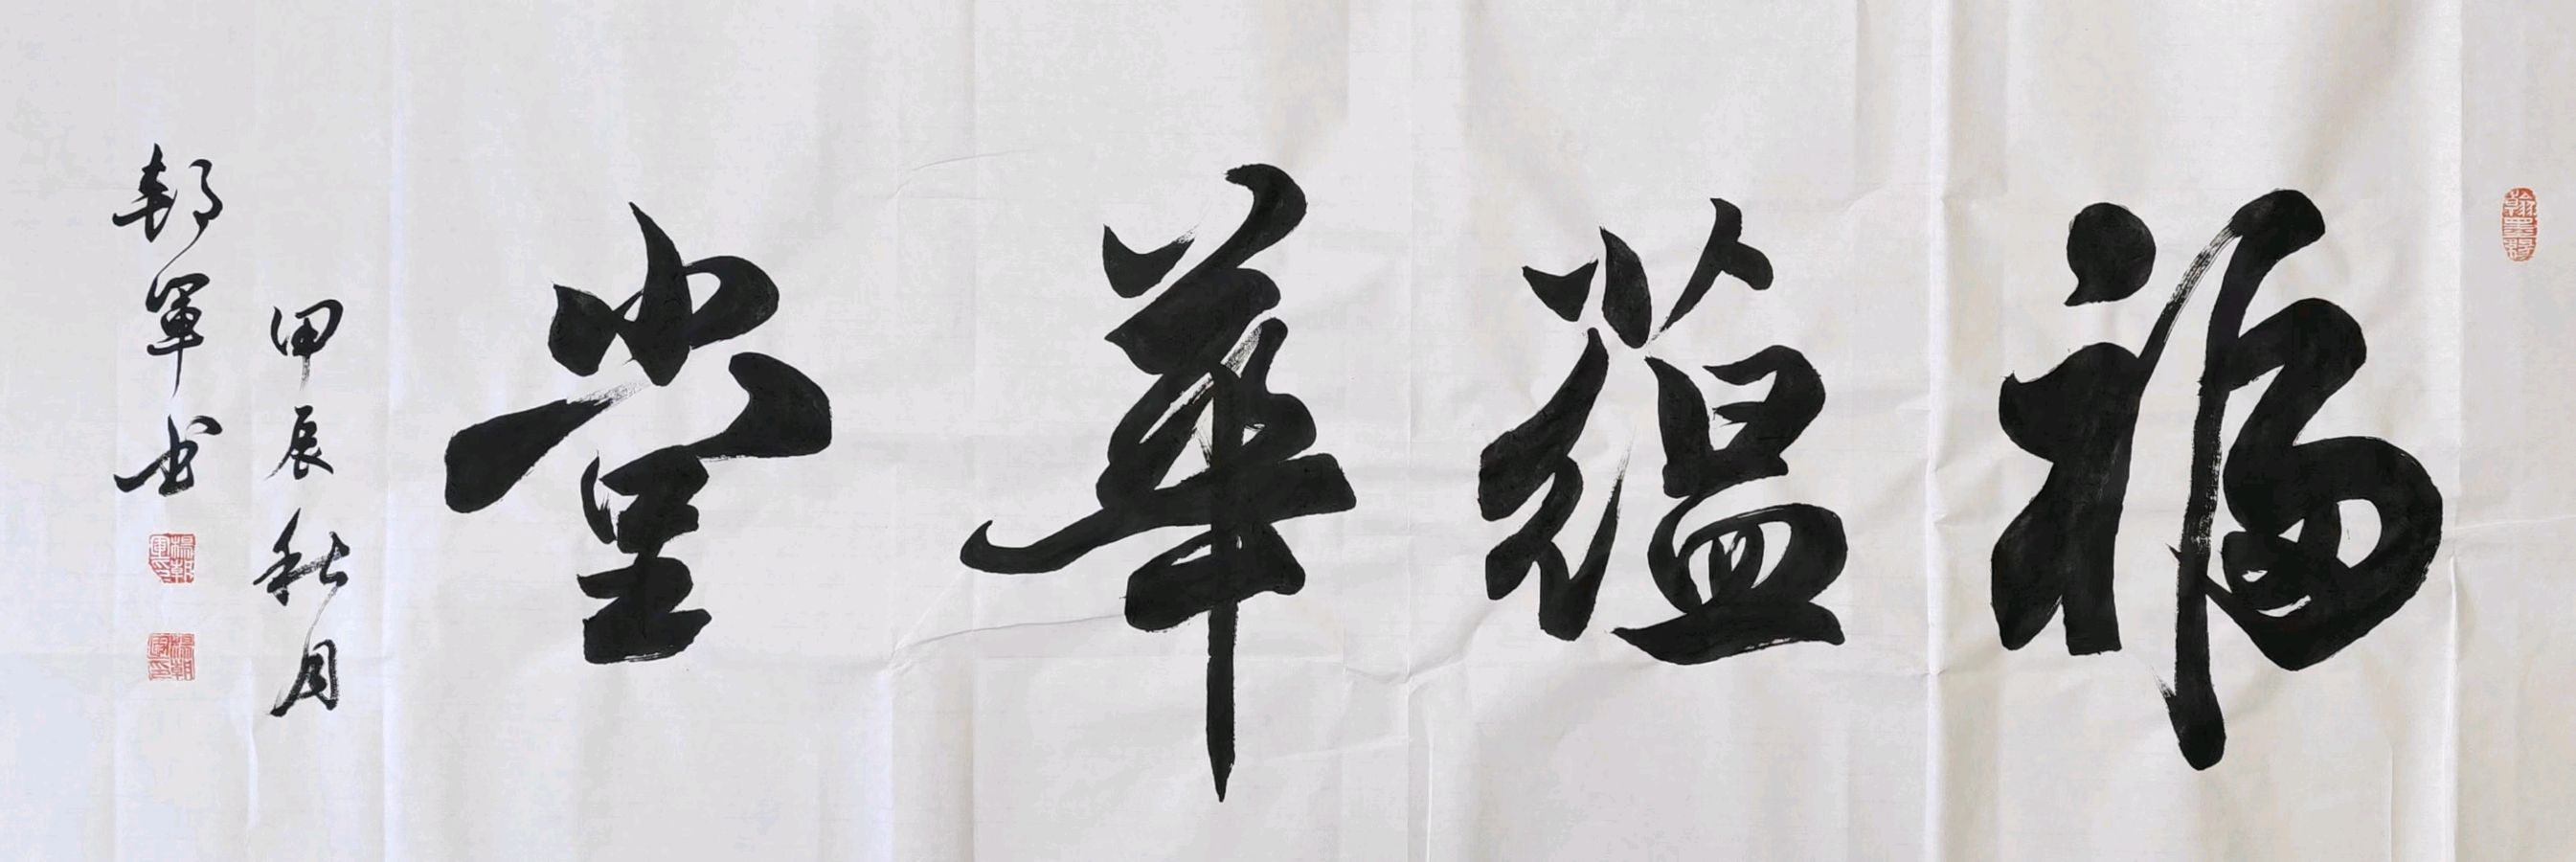 福蕴華堂
甲辰秋月
朝軍书